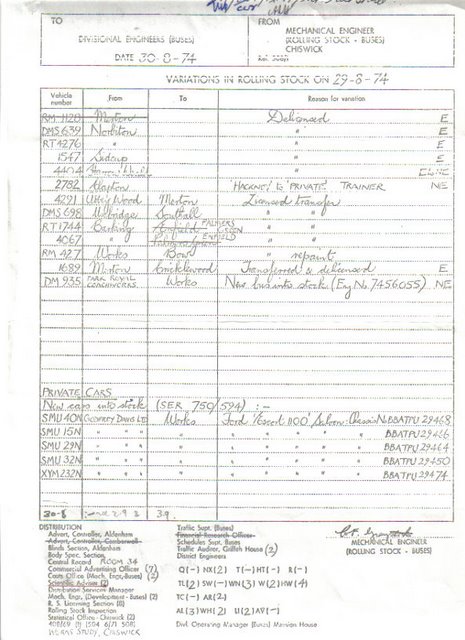 TO
DIVISIONAL ENGINEERS (BUSES)
DATE 30-8-74
FROM
MECHANICAL ENGINEER
(ROLLING STOCK - BUSES)
CHISWICK
VARIATIONS IN ROLLING STOCK ON 29-8-74
Vehicle number From To Reason for variation
RM 1128 Merton Delicensed E
DMS 639 Norbiton " E
RT 4276 " " E
1547 Sidcup " E
4404 "
2782 Clapton 'HACKNEY to 'PRIVATE' TRAINER NE
4291 Abbey Wood Merton Licensed transfer
DMS 698 Uxbridge Southall " "
RT 1744 Barking Enfield PALMERS GREEN " "
4067 " Palmers Green ENFIELD " "
RM 427 Works Bow " repaint
1689 Merton Cricklewood Transferred & delicensed E
DM 935 PARK ROYAL COACHWORKS Works New bus into stock (Eng No. 7456055) NE
PRIVATE CARS
New cars into stock (SER 750/594) :-
SMU 40N GODFREY DAVIS LTD Works Ford 'Escort 1100' Saloon: Chassis No BBATPU 29468
SMU 15N " " " " " " " " BBATPU 29466
SMU 29N " " " " " " " " BBATPU 29464
SMU 32N " " " " " " " " BBATPU 29450
XYM 232N " " " " " " " " BBATPU 29474
30-8
DISTRIBUTION
Advert. Controller, Aldenham
Advert. Controller, Camberwell
Blinds Section, Aldenham
Body Spec. Section
Central Record ROOM 34
Commercial Advertising Officer (7)
Costs Office (Mech. Engr. Buses) (2)
Scientific Adviser (2)
Distribution Services Manager
Mech. Engr. (Development - Buses) (2)
R. S. Licensing Section (8)
Rolling Stock Inspection
Statistical Office - Chiswick (2)
WORK STUDY, CHISWICK
Traffic Supt. (Buses)
Financial Research Officer
Schedules Supt. Buses
Traffic Auditor, Griffith House (2)
District Engineers
Q(-) NX(2) T(-) HT(-) R(-)
TL(2) SW(-) WN(3) W(2) HW(4)
TC(-) AR(2)
AL(3) WH(2) U(2) AV(-)
Divl. Operating Manager (Buses) Mansion House
MECHANICAL ENGINEER
(ROLLING STOCK - BUSES)